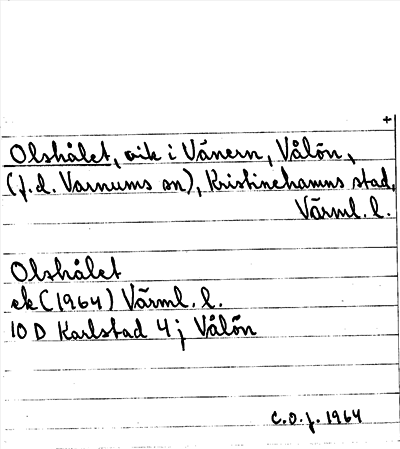 +
Olshålet, vik i Vänern, Vålön,
(f.d. Varnums sn), Kristinehamns stad,
Värml. l.
Olshålet
ek (1964) Värml. l.
10 D Karlstad 4 j Vålön
C.O.J. 1964